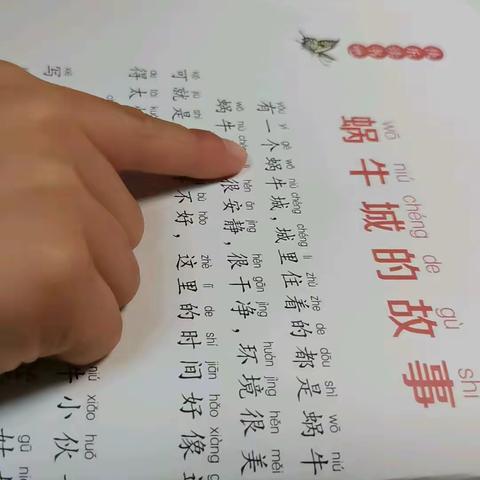 wō niú chéng de gù shi
蜗牛城的故事
yǒu yí gè wō niú chéng chéng lǐ zhù zhe de dōu shì wō niú
有一个蜗牛城，城里住着的都是蜗牛
wō niú chéng hěn ān jìng hěn gān jìng huán jìng hěn měi
蜗牛 很安静，很干净，环境很美
kě jiù shì bù hǎo zhè lǐ de shí jiān hǎo xiàng
可就是 不好，这里的时间好像
de tài
得太
xiě niú xiǎo huǒ
写 牛小伙
gū
姑